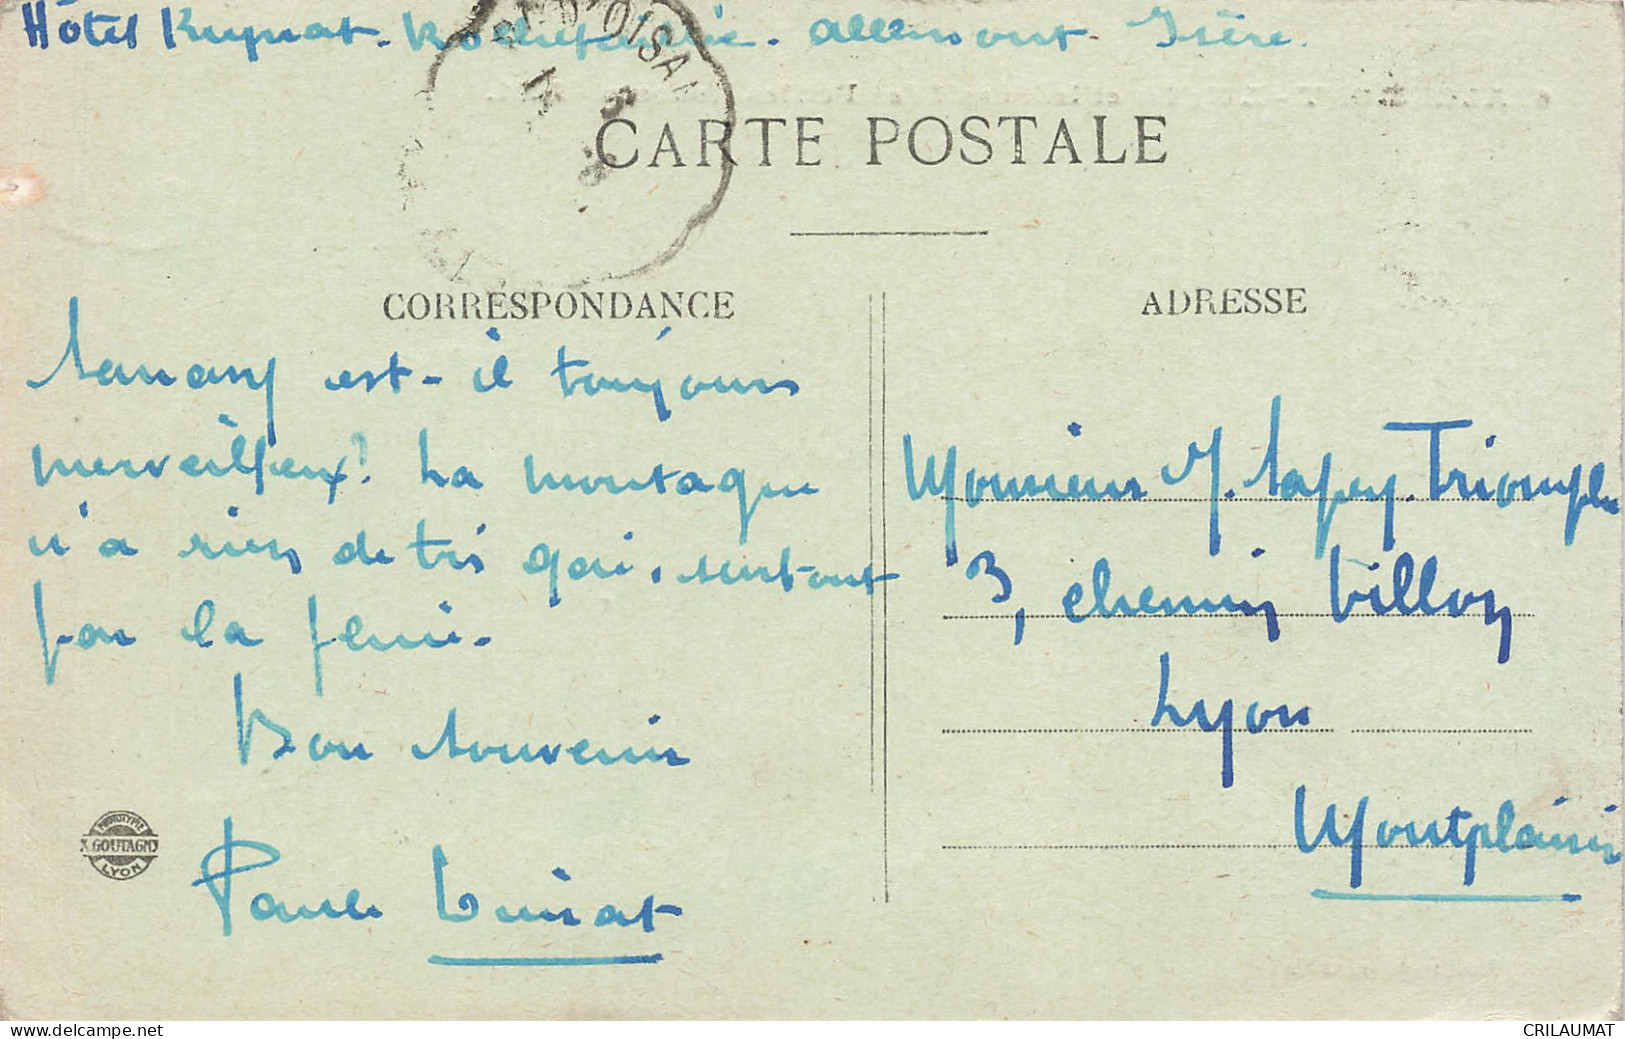 Hôtel Rochetaillée. Allemont. Isère.
D'OISAN
CARTE POSTALE
CORRESPONDANCE
ADRESSE
Sanary est-il toujours
merveilleux? La montagne
n'a rien de très gai, surtout
par la pluie.
Bon souvenir
Paule
Monsieur J. Lapey. Triomphe
3, chemin Villon
Lyon
Montplaisir
PHOTOTYPIE
X GOUTAGNY
LYON
www.delcampe.net
CRILAUMAT